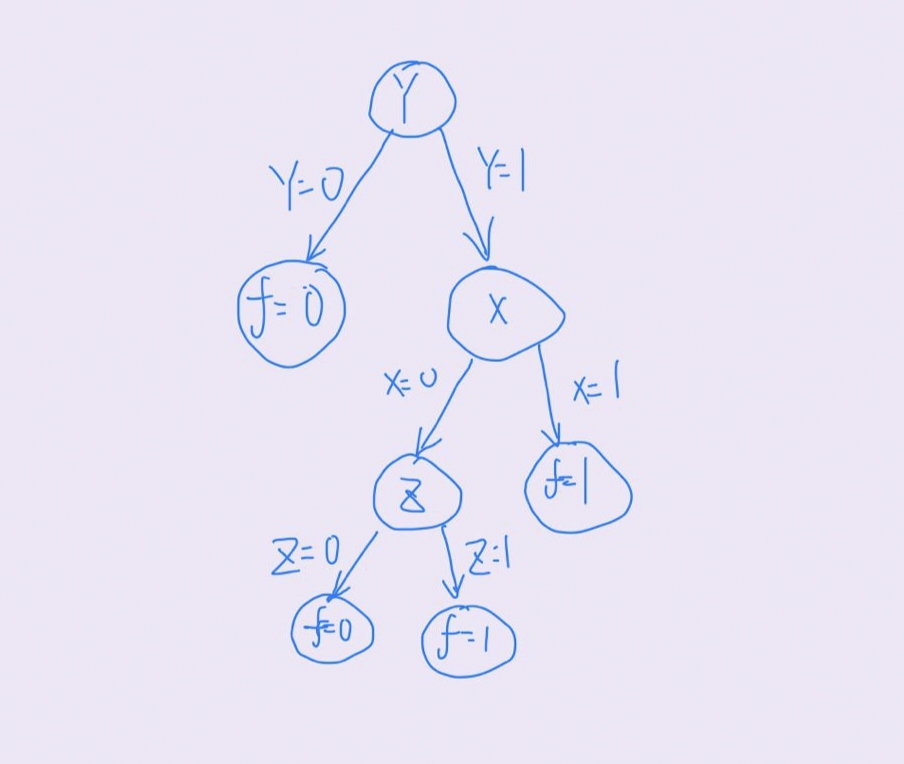 Y
Y=0
Y=1
f=0
X
X=0
X=1
Z
f=1
Z=0
Z=1
f=0
f=1